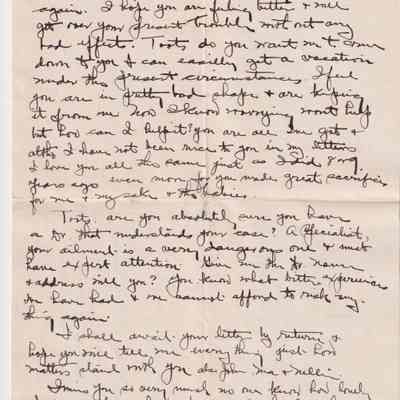 again. I hope you are feeling better & will
get over your present trouble with out any
bad effect. Toots do you want me to come
down to you I can easily get a vacation
under the present circumstances I feel
you are in pretty bad shape & are keeping
it from me now I know worrying wont help
but how can I help it? you are all Ive got &
altho I have not been nice to you in my letters
I love you all the same just as I did 8 or 9
years ago even more for you made great sacrifices
for me & my sake & the babies.
Toots, are you absolutely sure you have
a Dr that understands your case? A specialist,
your ailment is a very dangerous one & must
have expert attention. Give me the Dr name
& address will you? You know what bitter experiences
we have had & we cannot afford to risk any-
thing again.
I shall await your letter by return &
hope you will tell me everything just how
matters stand with you also John Ma & Nellie.
I miss you so very much no one knows how lonely